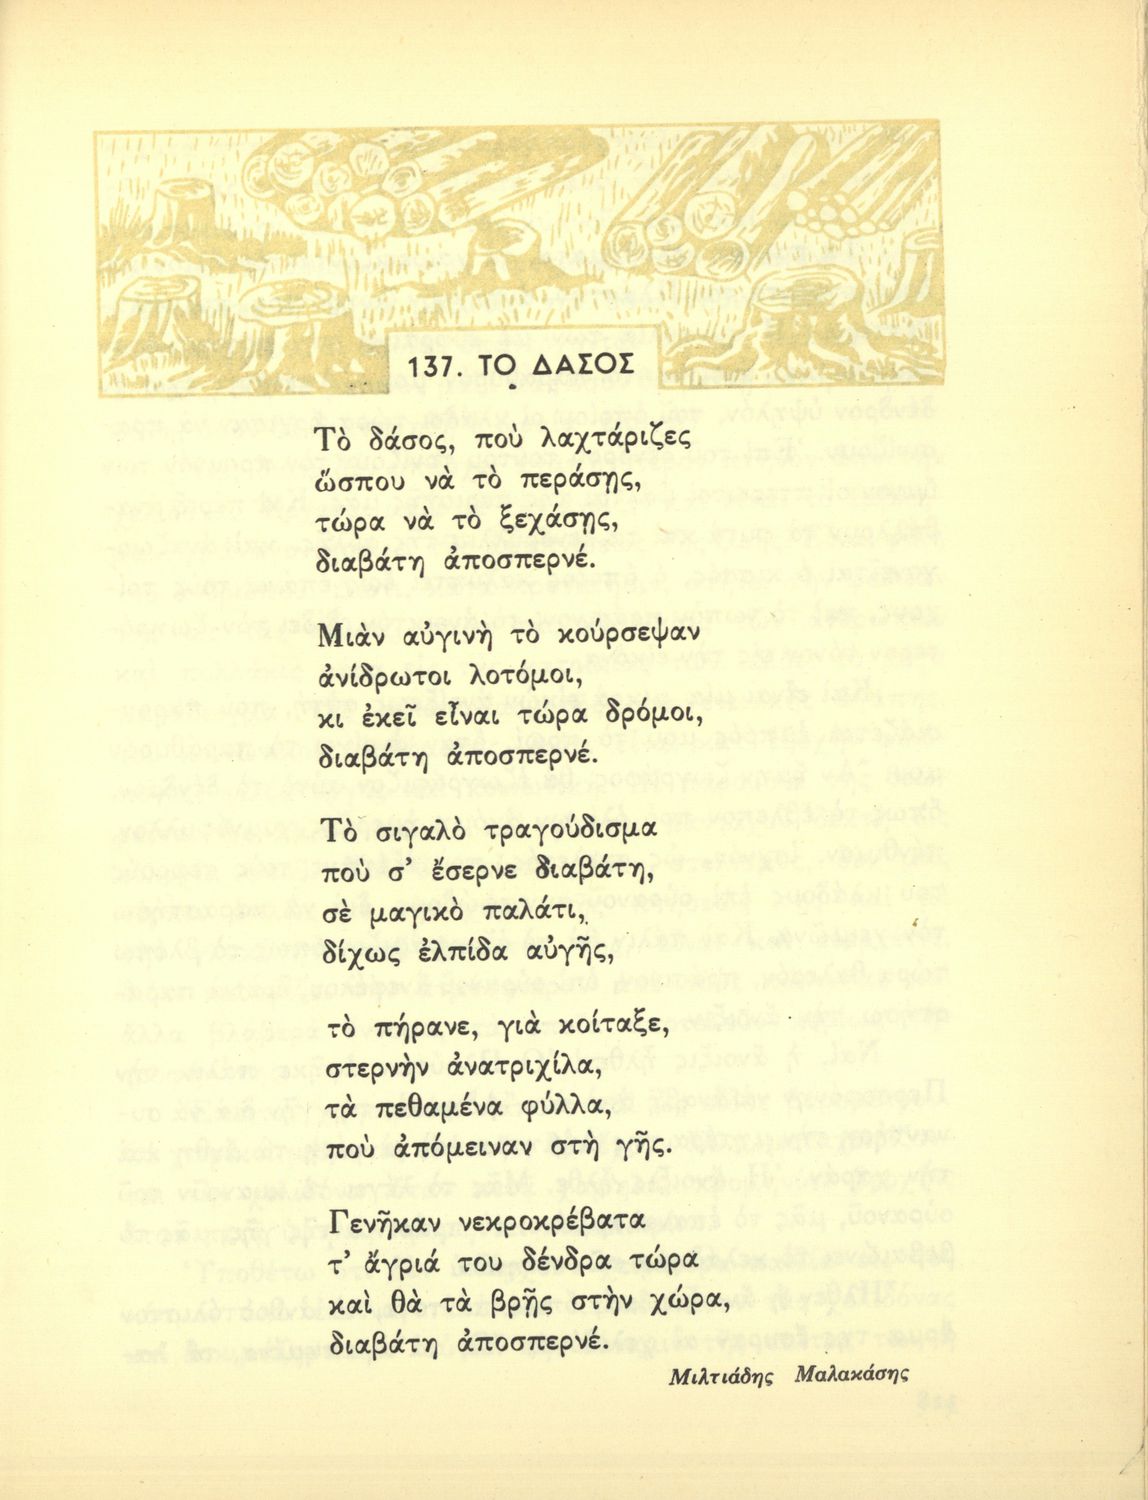 137. ΤΟ ΔΑΣΟΣ
Τὸ δάσος, ποὺ λαχτάριζες
ὥσπου νὰ τὸ περάσῃς,
τώρα νὰ τὸ ξεχάσῃς,
διαβάτη ἀποσπερνέ.
Μιὰν αὐγινὴ τὸ κούρσεψαν
ἀνίδρωτοι λοτόμοι,
κι ἐκεῖ εἶναι τώρα δρόμοι,
διαβάτη ἀποσπερνέ.
Τὸ σιγαλὸ τραγούδισμα
ποὺ σ' ἔσερνε διαβάτη,
σὲ μαγικὸ παλάτι,
δίχως ἐλπίδα αὐγῆς,
τὸ πήρανε, γιὰ κοίταξε,
στερνὴν ἀνατριχίλα,
τὰ πεθαμένα φύλλα,
ποὺ ἀπόμειναν στὴ γῆς.
Γενῆκαν νεκροκρέβατα
τ' ἄγριά του δένδρα τώρα
καὶ θὰ τὰ βρῇς στὴν χώρα,
διαβάτη ἀποσπερνέ.
Μιλτιάδης Μαλακάσης